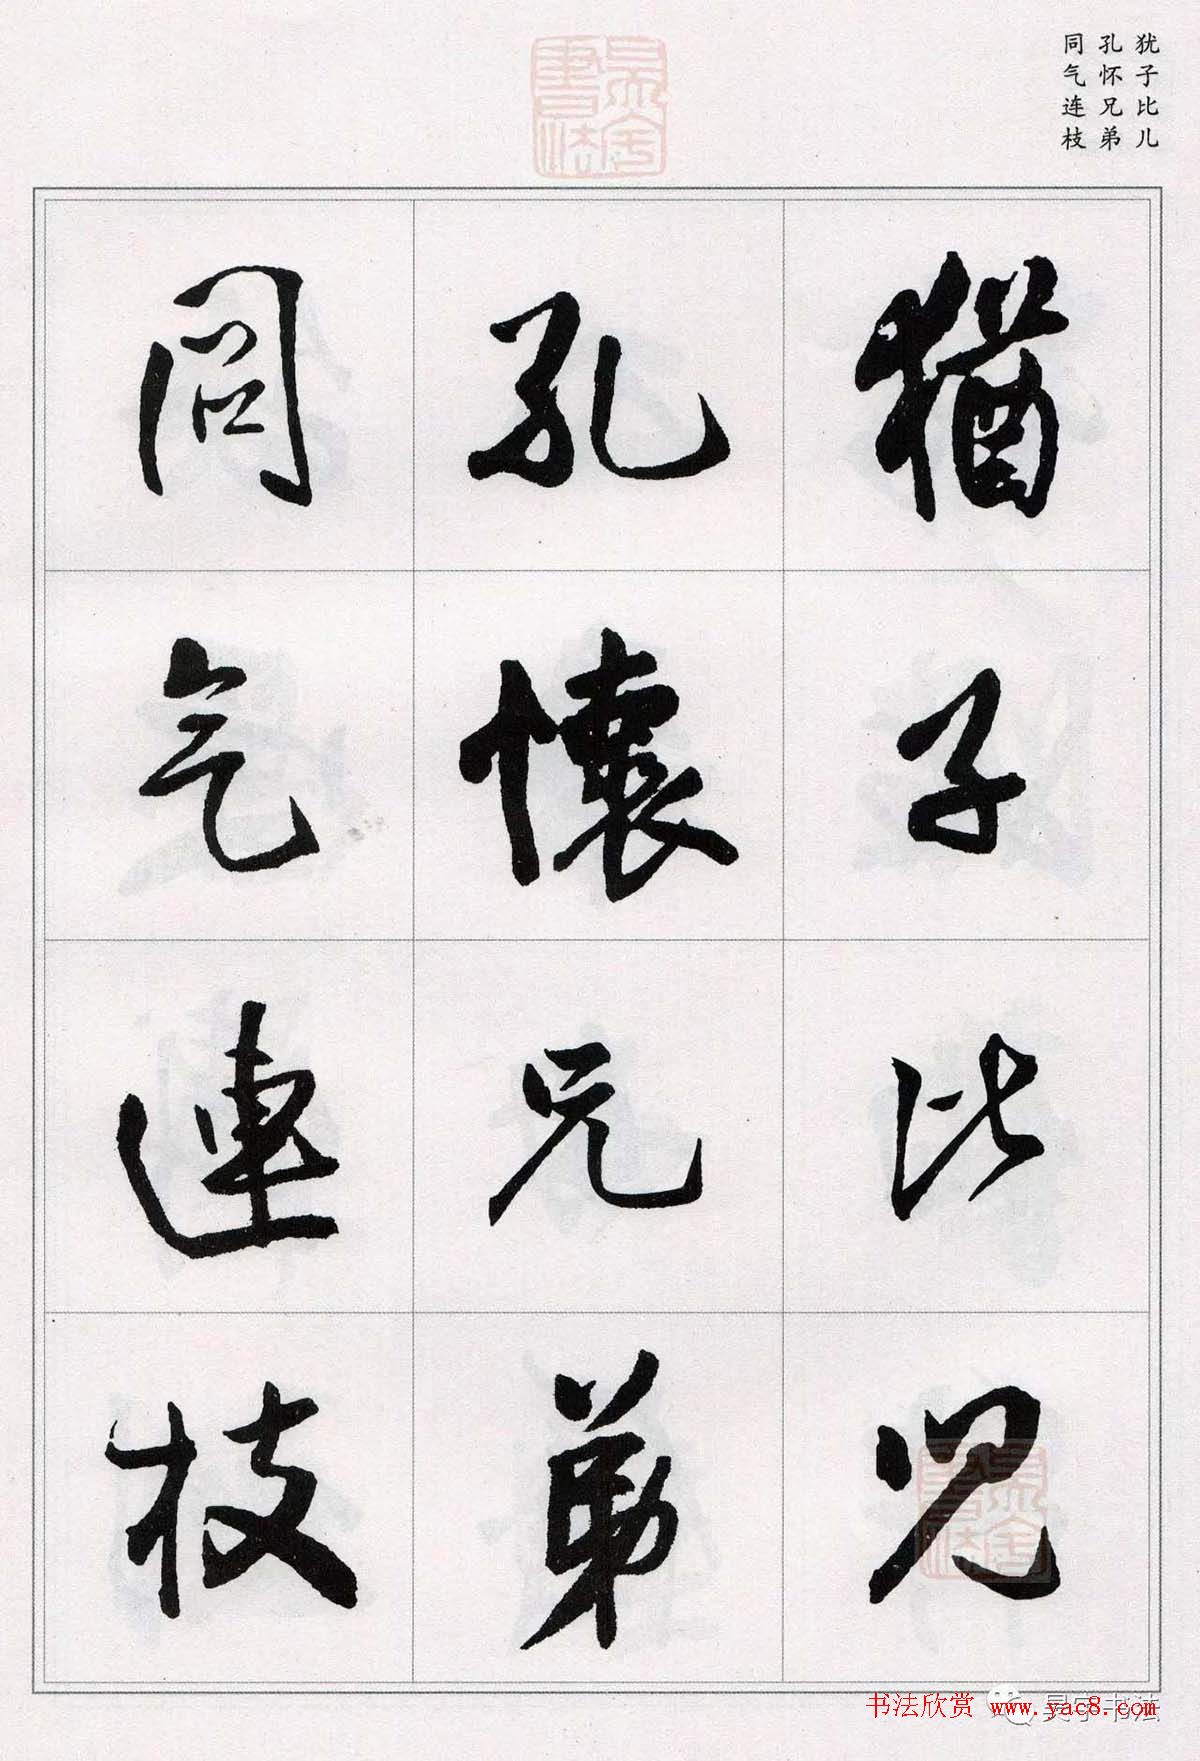 犹子比儿
孔怀兄弟
同气连枝
猶子比兒
孔懷兄弟
同气連枝
书法欣赏 www.yac8.com
昊宇书法